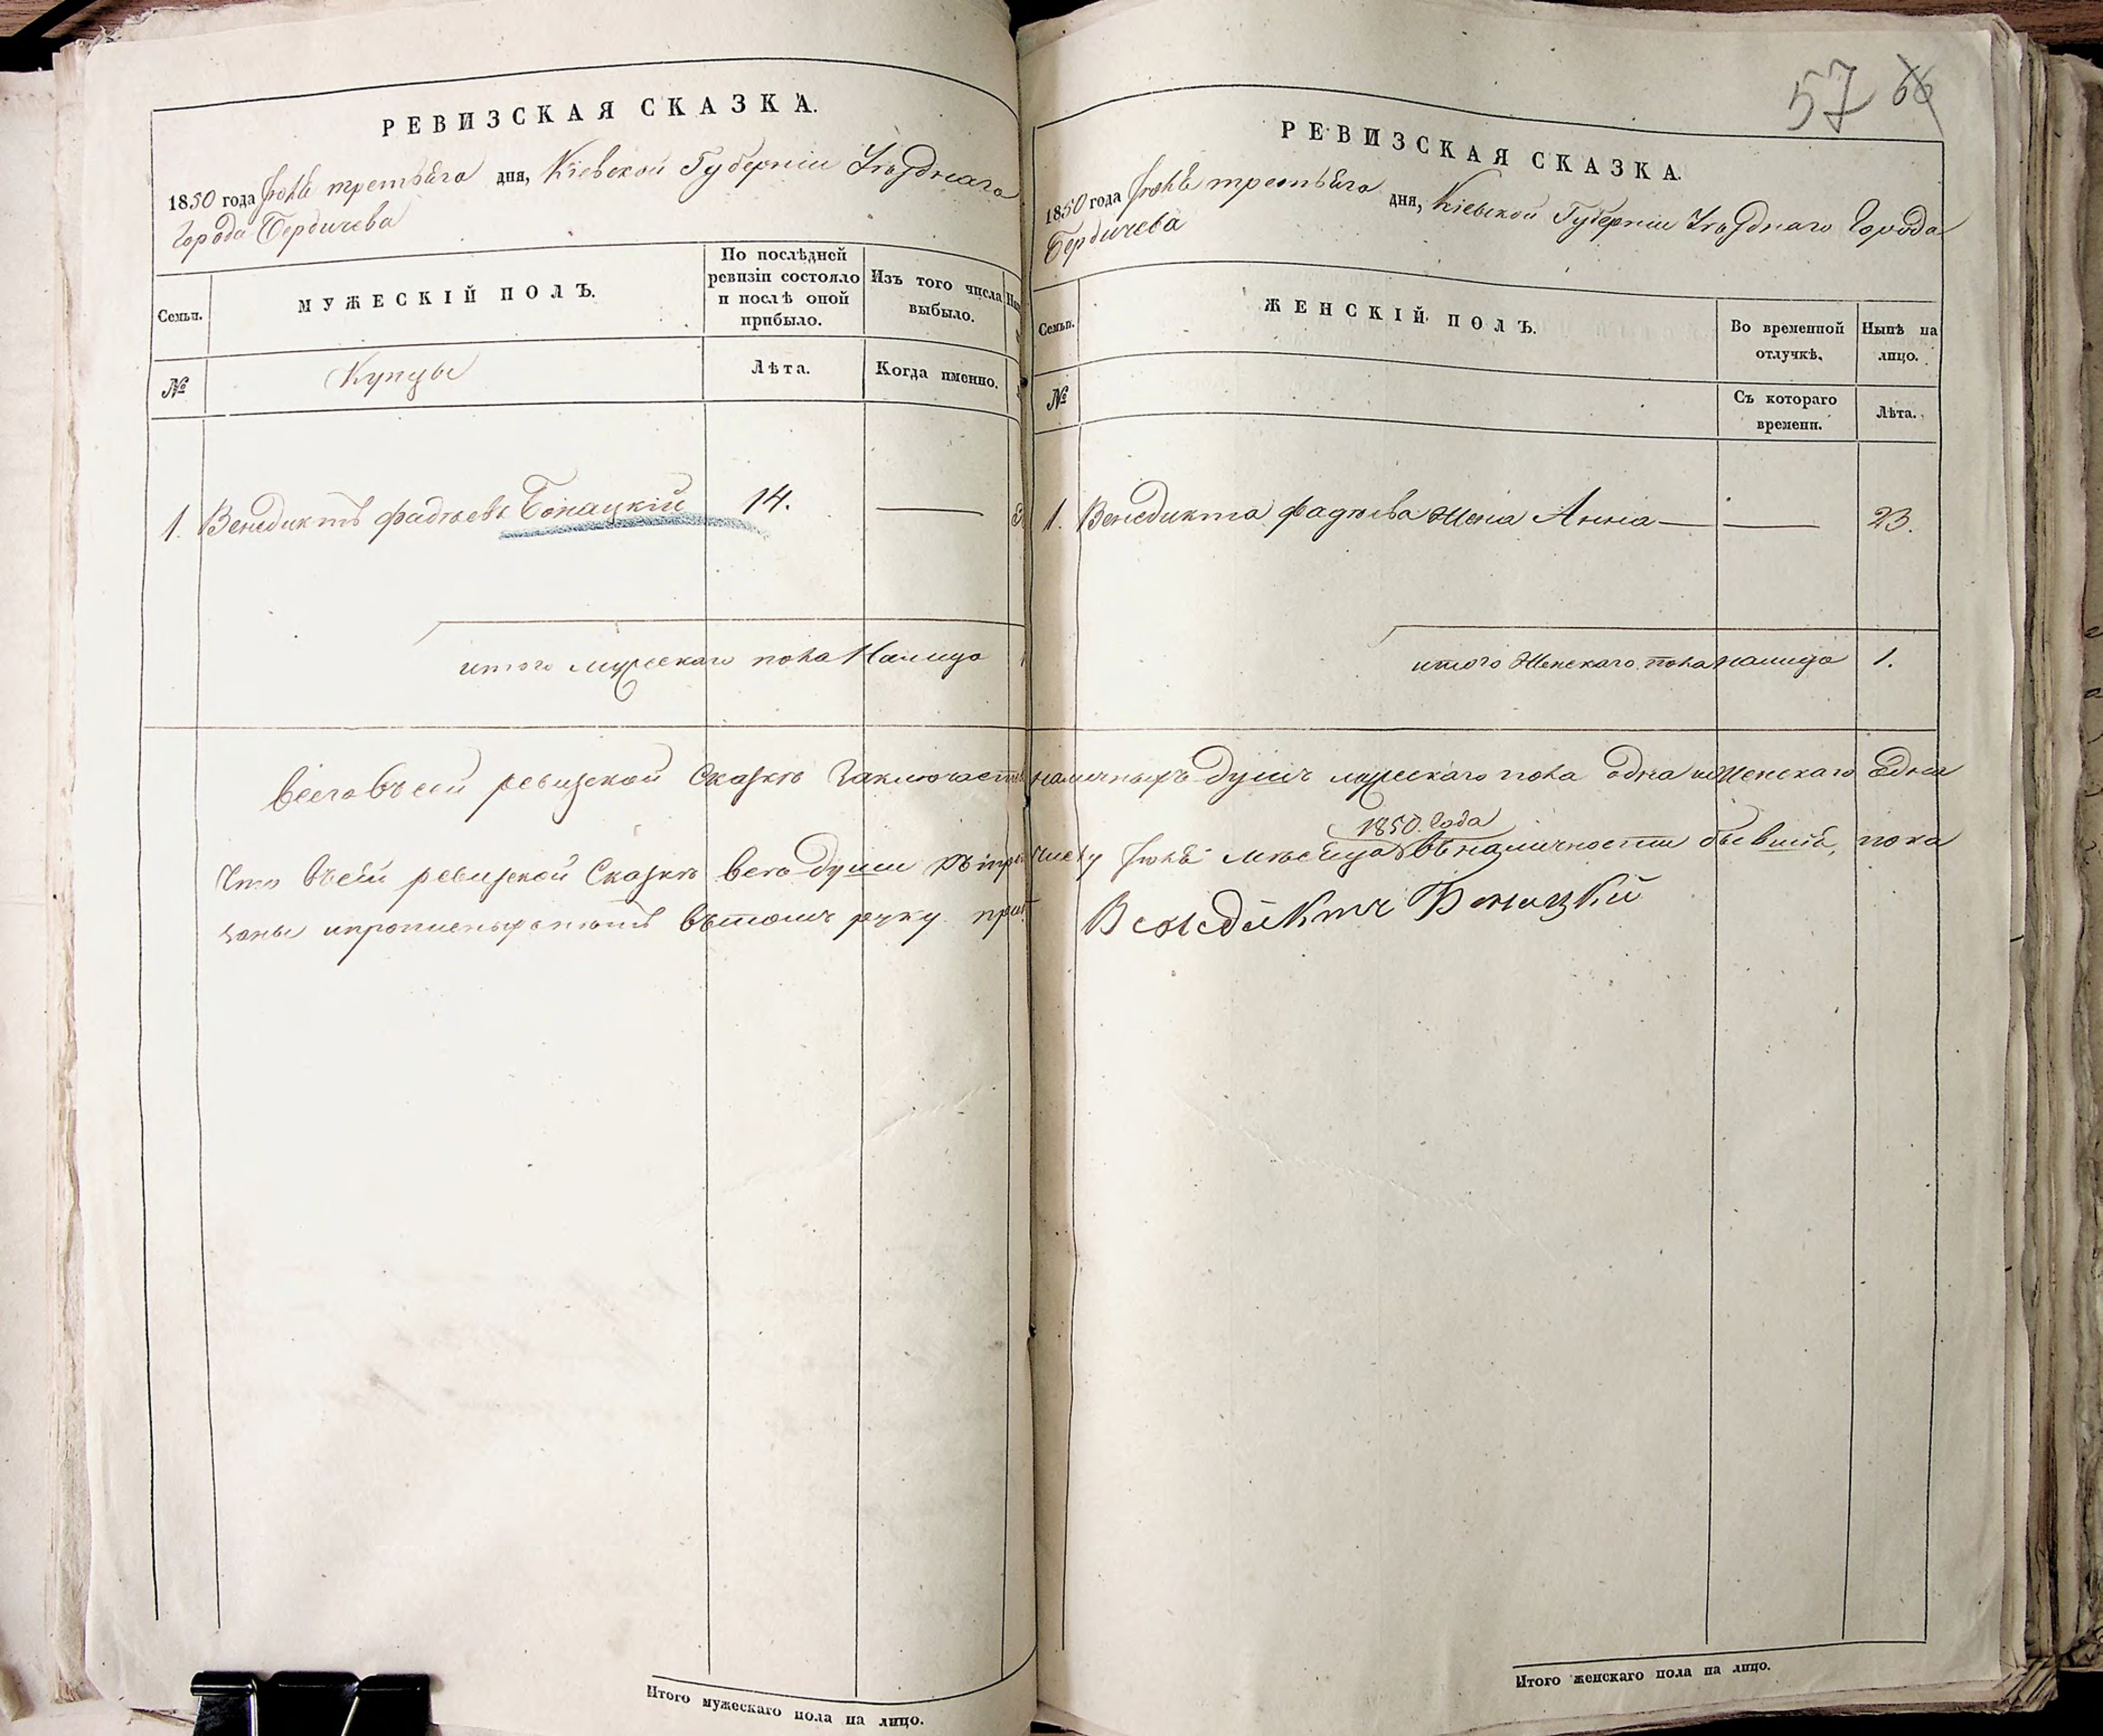 РЕВИЗСКАЯ СКАЗКА.
1850 года Іюля третьяго дня, Кіевской Губерніи Уѣзднаго
города Бердичева
Семьи.
МУЖЕСКІЙ ПОЛЪ.
По послѣдней ревизіи состояло и послѣ оной прибыло.
Изъ того числа выбыло.
№
Купцы
Лѣта.
Когда именно.
1. Венедиктъ Фадѣевъ Бонацкій 14. —
итого мужескаго пола налицо
Всего въ сей ревизской сказкѣ заключает
Что въ сей ревизской сказкѣ все души къ
заны и пропиcныхъ нѣтъ въ томъ руку
Итого мужескаго пола на лицо.
57 66
РЕВИЗСКАЯ СКАЗКА.
1850 года Іюля третьяго дня, Кіевской Губерніи Уѣзднаго Города
Бердичева
Семьи.
ЖЕНСКІЙ ПОЛЪ.
Во временной отлучкѣ.
Нынѣ на лицо.
№
Съ котораго времени.
Лѣта.
1. Венедикта Фадѣева жена Анна — — 23.
итого Женскаго пола налицо 1.
наличныхъ душъ мужескаго пола одна и женскаго одна
1850. года
числу Іюля мѣсяца въ наличности бывшія, пока
Венедиктъ Бонацкій
Итого женскаго пола на лицо.